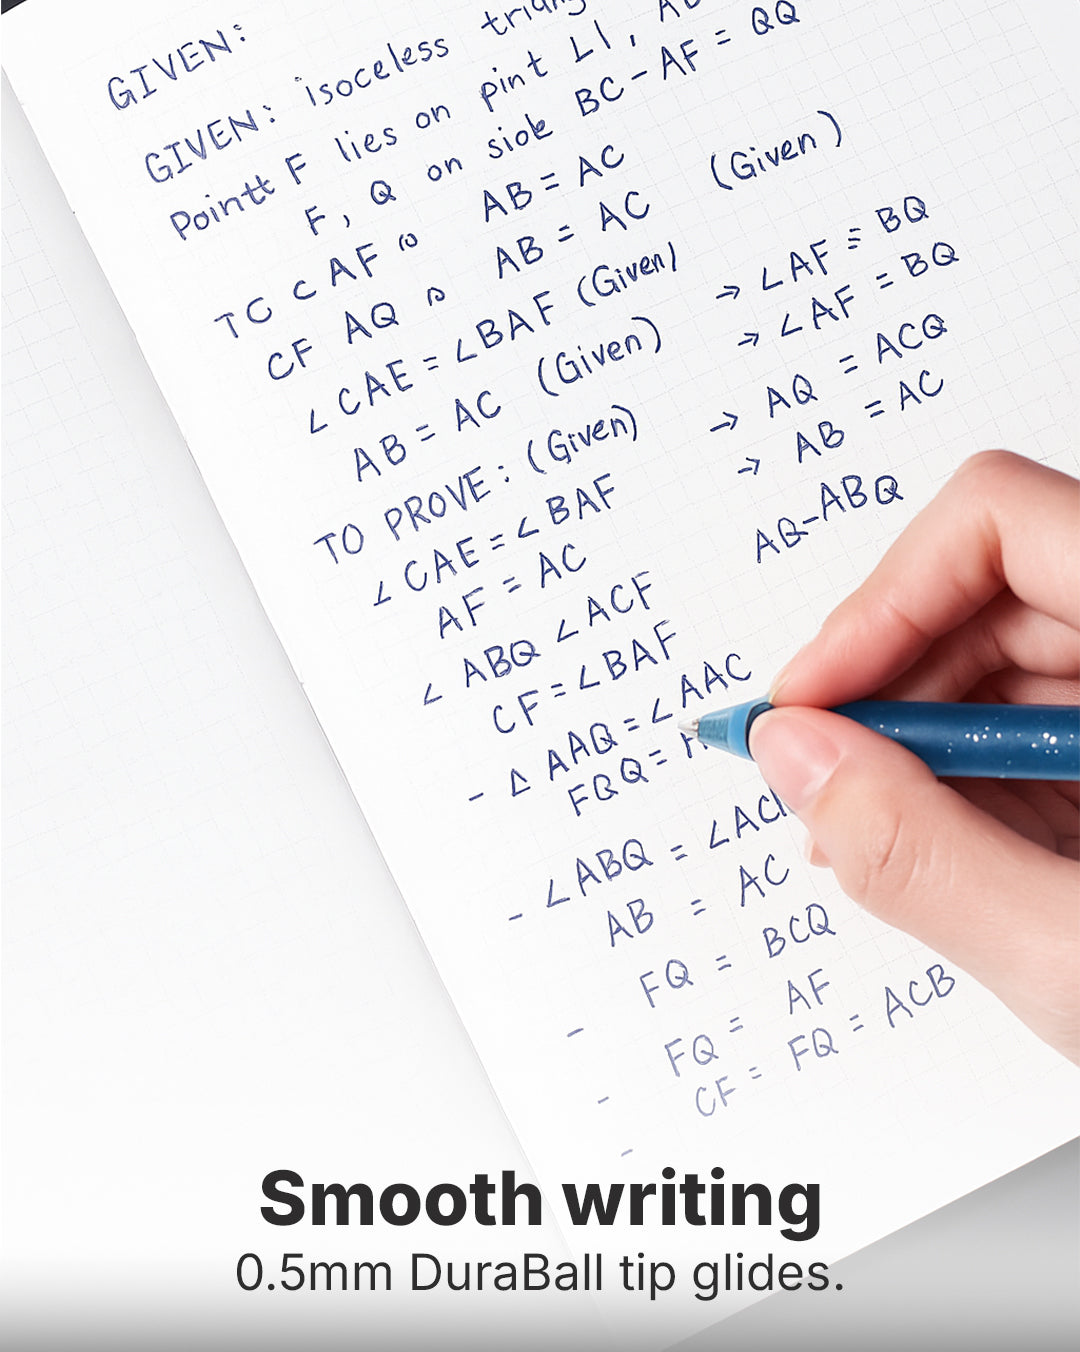 GIVEN:
GIVEN: isoceless
Pointt F lies on pint L1,
F, Q on side BC - AF = QQ
TC C AF AB = AC
CF AQ AB = AC (Given)
∠CAE = ∠BAF (Given) → ∠AF = BQ
AB = AC (Given) → ∠AF = BQ
TO PROVE: (Given) → AQ = ACQ
∠CAE = ∠BAF → AB = AC
AF = AC AQ-ABQ
∠ABQ ∠ACF
CF = ∠BAF
- Δ AAQ = ∠AAC
FQQ =
- ∠ABQ =
AB = AC
FQ = BCQ
- FQ = AF
- CF = FQ = ACB
-
Smooth writing
0.5mm DuraBall tip glides.